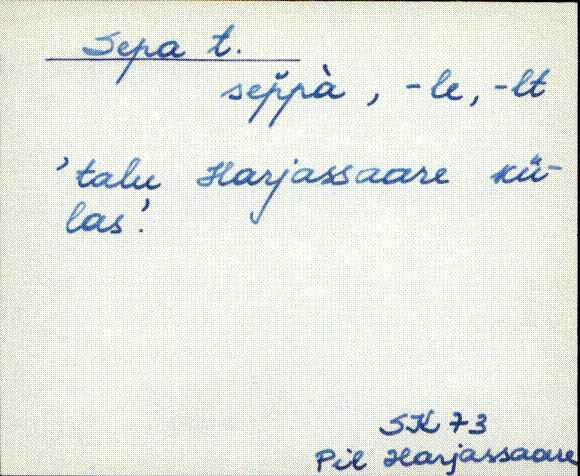 Sepa t.
sep̆pà, -le, -lt
'talu Harjassaare kü-
las'.
SK 73
Pil Harjassaare